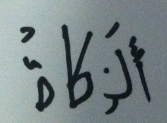 أَلزَكَاةُ